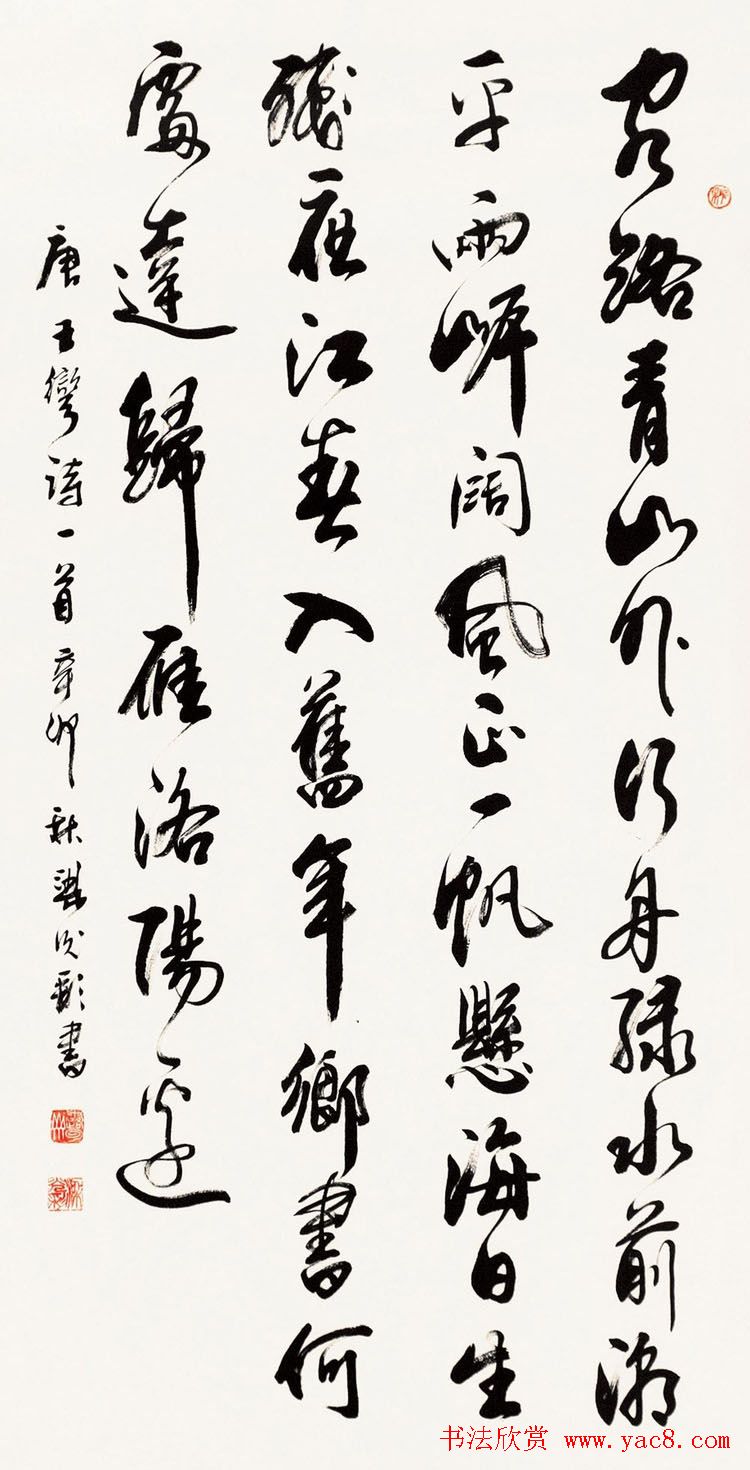 客路青山外行舟綠水前潮
平兩岸闊風正一帆懸海日生
殘夜江春入舊年鄉書何
處達歸雁洛陽邊
唐王彎詩一首辛卯秋書
书法欣赏 www.yac8.com